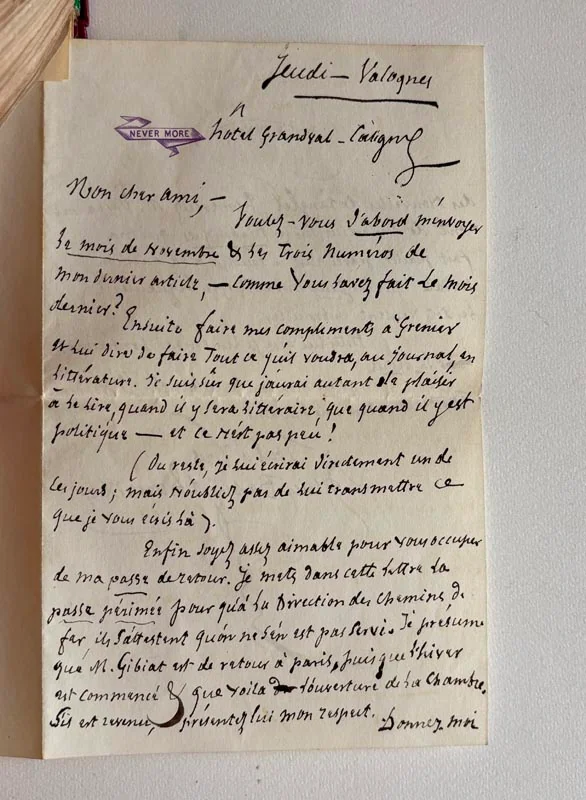 Jeudi – Valognes
NEVER MORE
hôtel Grandval – Caligny
Mon cher ami, –
Voulez-vous d'abord m'envoyer
le mois de Novembre & les Trois Numéros de
mon dernier article, – comme vous l'avez fait le mois
dernier?
Ensuite faire mes compliments à Grenier
et lui dire de faire Tout ce qu'il voudra, au journal, en
littérature. Je suis sûr que j'aurai autant de plaisir
à le lire, quand il y sera littéraire, que quand il y est
politique — et ce n'est pas peu!
(Du reste, je lui écrirai directement un de
ces jours; mais n'oubliez pas de lui transmettre ce
que je vous écris là).
Enfin soyez assez aimable pour vous occuper
de ma passe de retour. Je mets dans cette lettre la
passe périmée pour qu'à la Direction des chemins de
fer ils s'attestent qu'on ne s'en est pas servi. Je présume
que M. Gibiat est de retour à paris, puisque l'hiver
est commencé & que voilà l'ouverture de la Chambre.
S'il est revenu, présentez lui mon respect. Donnez moi